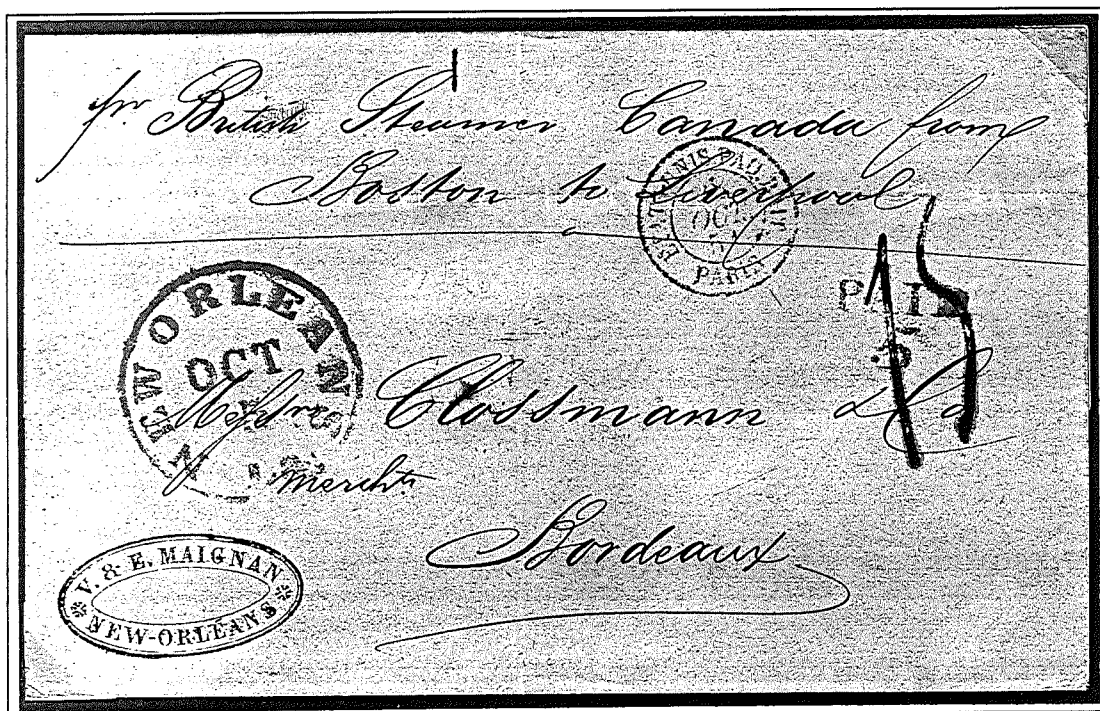 pr British Steamer Canada from
Boston to Liverpool
ETATS-UNIS PAQ.
OCT
PARIS
NEW ORLEANS
OCT
PAID
15
Messrs Clossmann & Co
Mercht
Bordeaux
V. & E. MAIGNAN
NEW-ORLEANS